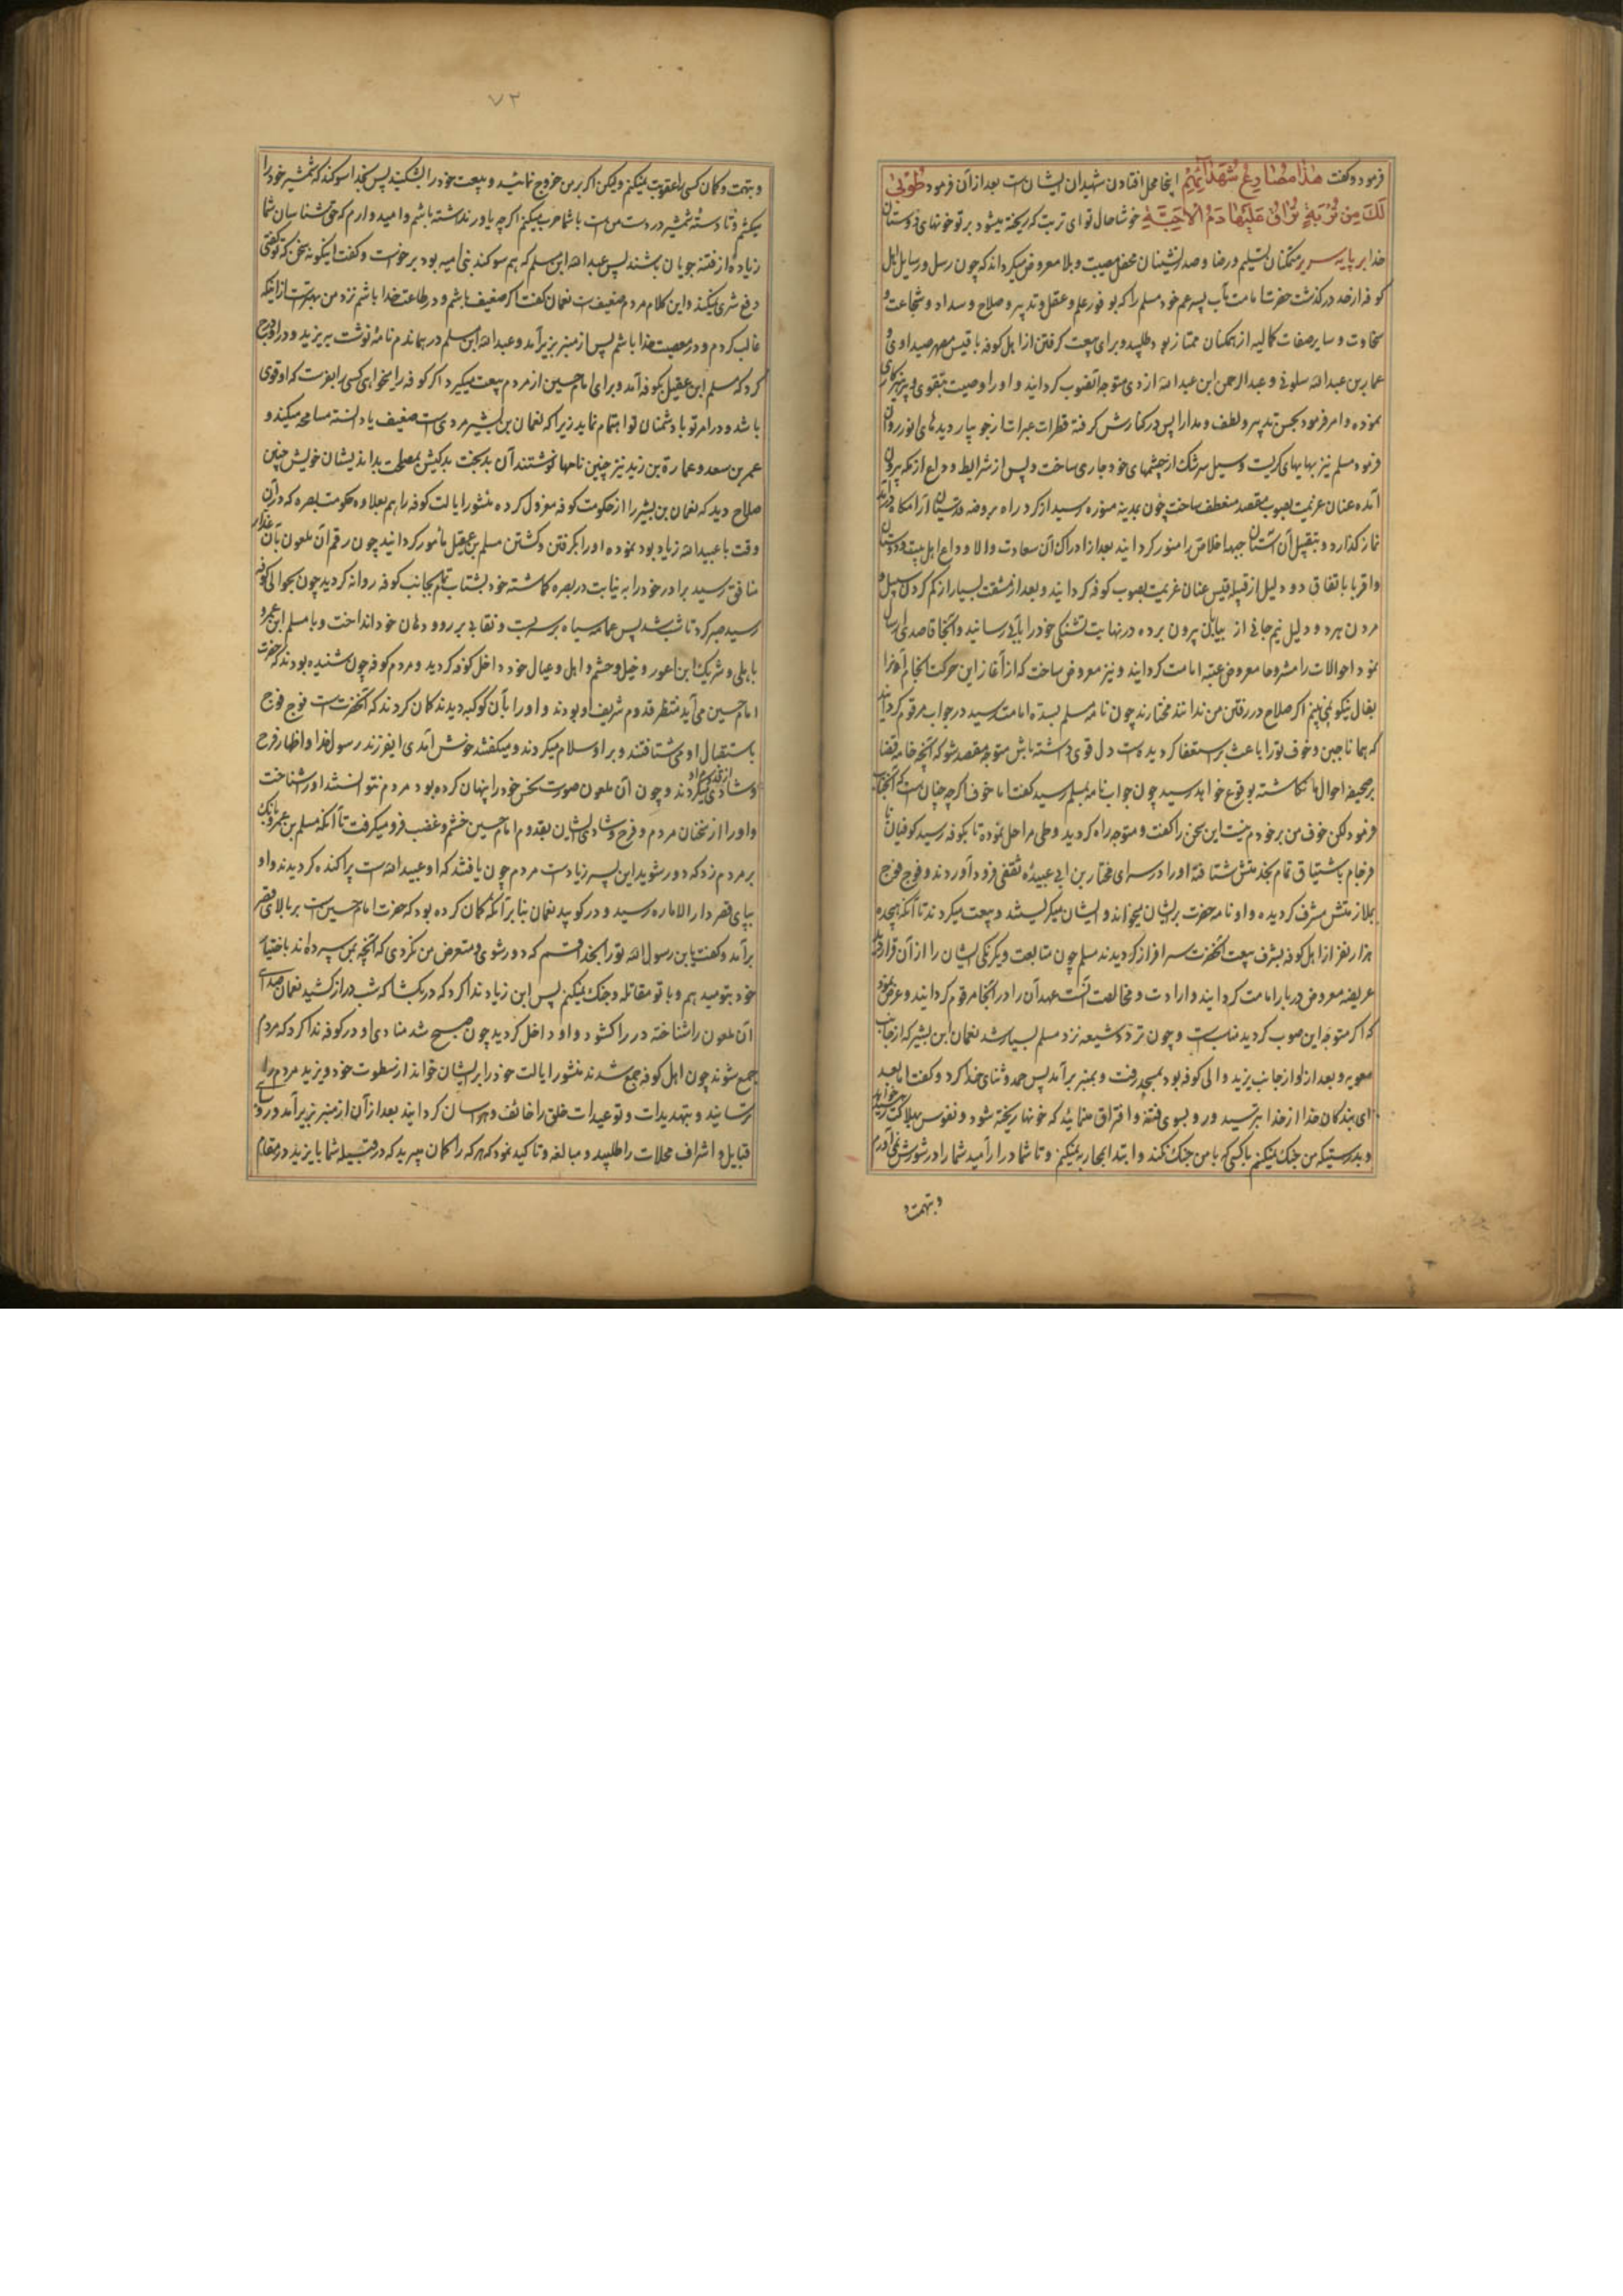 فرمود و گفت هٰذا مَصٰارِعُ شُهَدٰآئِهِمْ اینجا محل افتادن شهیدان ایشان است بعد از آن فرمود طُوبیٰ
لَکَ مِنْ تُرْبَةٍ تُراقُ عَلَیْهٰا دَمُ الْاَحِبَّةِ خوشا حال تو ای تربت که ریخته میشود بر تو خونهای دوستان
خدا بر پایه سریر متمکنان تسلیم و رضا و صدرنشینان محفل مصیبت و بلا معروض میگرداند که چون رسل و رسایل اهل
کوفه از حد در گذشت حضرت امامت مآب پسر عم خود مسلم را که بوفور علم و عقل و تدبیر و صلاح و سداد و شجاعت و
سخاوت و سایر صفات کمالیه از همکنان ممتاز بود طلبید و برای بیعت گرفتن از اهل کوفه با قیس بن مصهر صیداوی و
عمار بن عبدالله سلولی و عبدالرحمن ابن عبدالله ازدی متوجه آنصوب گردانید و او را وصیت بتقوی و پرهیزکاری
نموده و امر فرمود بحسن تدبیر و لطف و مدارا پس در کنارش گرفته قطرات عبرات از جویبار دیدهای انور روان
فرمود مسلم نیز بهایهای گریست و سیل سرشک از چشمهای خود جاری ساخت و پس از شرایط وداع از مکه بیرون
آمده عنان عزیمت بصوب مقصد منعطف ساخت چون بمدینه منوره رسید از گرد راه بروضه
نماز گذارد و بتقبیل آن آستان جبهه اخلاص را منور گردانید بعد از ادراک آن سعادت والا وداع اهل بیت و دوستان
و اقربا باتفاق دو دلیل از قبیله قیس عنان عزیمت بصوب کوفه گردانید و بعد از مشقت بسیار از گم کردن سبیل و
مردن هر دو دلیل نیم جانی از بیابان بیرون برده در نهایت تشنگی خود را بآبی رسانید و از آنجا قاصدی ارسال
نمود احوالات را مشروحا معروض عتبه امامت گردانید و نیز معروض ساخت که از آغاز این حرکت انجام آنرا
بفال نیکو نمی بینم اگر صلاح در رفتن من ندانند مختارند چون نامه مسلم بسده امامت رسید در جواب مرقوم گردانید
که همانا جبن و خوف تو را باعث بر استعفا گردیده است دل قوی داشته باش متوجه مقصد شو که آنچه خامه قضا
بر صحیفه احوال ما نگاشته بوقوع خواهد رسید چون جواب نامه بمسلم رسید گفت اما خوف اگر چه چنان است که آنجناب
فرمود لکن خوف من بر خودم نیست این سخن را گفت و متوجه راه گردید و طی مراحل نموده تا بکوفه رسید کوفیان
فرجام باشتیاق تمام بخدمتش شتافته او را در سرای مختار بن ابی عبیده ثقفی فرود آوردند و فوج فوج
بملازمتش مشرف گردیده و او نامه حضرت بر ایشان میخواند و ایشان میگریستند و بیعت میکردند تا آنکه هیجده
هزار نفر از اهل کوفه بشرف بیعت آنحضرت سرافراز گردیدند مسلم چون متابعت و یکرنگی ایشان را از آن قرار دید
عریضه معروض دربار امامت گردانید و ارادت و مخالصت آن سست عهدان را در آنجا مرقوم گردانید و عرض نمود
که اگر متوجه این صوب گردید مناسب است و چون تردد شیعه نزد مسلم بسیار شد نعمان ابن بشیر که از جانب
معویه و بعد از او از جانب یزید والی کوفه بود بمسجد رفت و بمنبر برآمد پس حمد و ثنای خدا کرد و گفت اما بعد
ای بندگان خدا از خدا بترسید و رو بسوی فتنه و افتراق منمائید که خونها ریخته شود و نفوس بهلاکت رسد
و بدرستیکه من جنگ نمیکنم با کسی که با من جنگ نکند و ابتدا بمحاربه نمیکنم و تا شما در آرامید شما را در شورش نمی آورم
و بتهمت و
۷۳
و بتهمت و گمان کسی را عقوبت نمیکنم و لیکن اگر بر من خروج نمائید و بیعت خود را بشکنید پس بخدا سوگند که شمشیر خود را
میکشم و تا دسته شمشیر در دست من است با شما حرب میکنم اگر چه یاور نداشته باشم و امیدوارم که حق شناسان شما
زیاده از فتنه جویان باشند پس عبدالله ابن مسلم که هم سوگند بنی امیه بود برخواست و گفت اینگونه سخن که تو گفتی
دفع شری نمیکند و این کلام مردم ضعیف است نعمان گفت اگر ضعیف باشم و در طاعت خدا باشم نزد من بهتر است از اینکه
غالب گردم و در معصیت خدا باشم پس از منبر بزیر آمد و عبدالله ابن مسلم در همان دم نامه نوشت بیزید و در او درج
کرد که مسلم ابن عقیل بکوفه آمد و برای امام حسین از مردم بیعت میگیرد اگر کوفه را میخواهی کسی را بفرست که او قوی
باشد و در امر تو با دشمنان تو اهتمام نماید زیرا که نعمان بن بشیر مردی است ضعیف یا دانسته مسامحه میکند و
عمر بن سعد و عمارة بن زید نیز چنین نامها نوشتند آن بدبخت بدکیش بمصلحت بداندیشان خویش چنین
صلاح دید که نعمان بن بشیر را از حکومت کوفه معزول کرده منشور ایالت کوفه را هم بعلاوه حکومت بصره که در آن
وقت با عبیدالله زیاد بود نموده او را بگرفتن و کشتن مسلم بن عقیل مأمور گردانید چون رقم آن ملعون بآن غدار
منافق رسید برادر خود را به نیابت در بصره گماشته خود بشتاب تمام بجانب کوفه روانه گردید چون بحوالی کوفه
رسید صبر کرد تا شب شد پس عمامه سیاه بر سر بست و نقابی بر رو و دهان خود انداخت و با مسلم ابن عمرو
باهلی و شریک ابن اعور و خیل و حشم و اهل و عیال خود داخل کوفه گردید و مردم کوفه چون شنیده بودند که حضرت
امام حسین می آید منتظر قدوم شریف او بودند و او را بآن کوکبه دیدند گمان کردند که آنحضرت است فوج فوج
باستقبال او می شتافتند و بر او سلام میکردند و میگفتند خوش آمدی ای فرزند رسول خدا و اظهار فرح
و شادی میکردند و چون آن ملعون صورت نحس خود را پنهان کرده بود مردم نتوانستند او را شناخت
و او را از سخنان مردم و فرح و شادی ایشان بقدوم امام حسین خشم و غضب فرو میگرفت تا آنکه مسلم بن عمرو بانگ
بر مردم زد که دور شوید این پسر زیاد است مردم چون یافتند که او عبیدالله است پراکنده گردیدند و او
بپای قصر دارالاماره رسید و در کوبید نعمان بنا بر آنکه گمان کرده بود که حضرت امام حسین است بر بالای قصر
برآمد و گفت یا بن رسول الله تو را بخدا قسم که دور شوی و متعرض من نگردی که آنچه بمن سپرده اند باختیار
خود بتو نمیدهم و با تو مقاتله و جنگ نمیکنم پس ابن زیاد ندا کرد که در بگشا که شب دراز کشید نعمان صدای
آن ملعون را شناخته در را گشود و او داخل گردید چون صبح شد منادی او در کوفه ندا کرد که مردم
جمع شوند چون اهل کوفه جمع شدند منشور ایالت خود را بر ایشان خواند از سطوت خود و یزید مردم را
ترسانید و بتهدیدات و توعیدات خلق را خائف و هراسان گردانید بعد از آن از منبر بزیر آمد و رؤسای
قبایل و اشراف محلات را طلبید و مبالغه و تاکید نمود که هر که را گمان میبرید که در قبیله شما با یزید در مقام